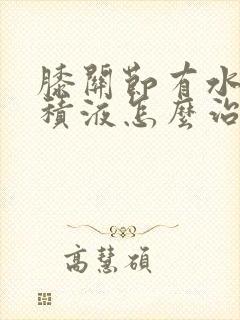 膝關節有水
積液怎麼治
高慧碩